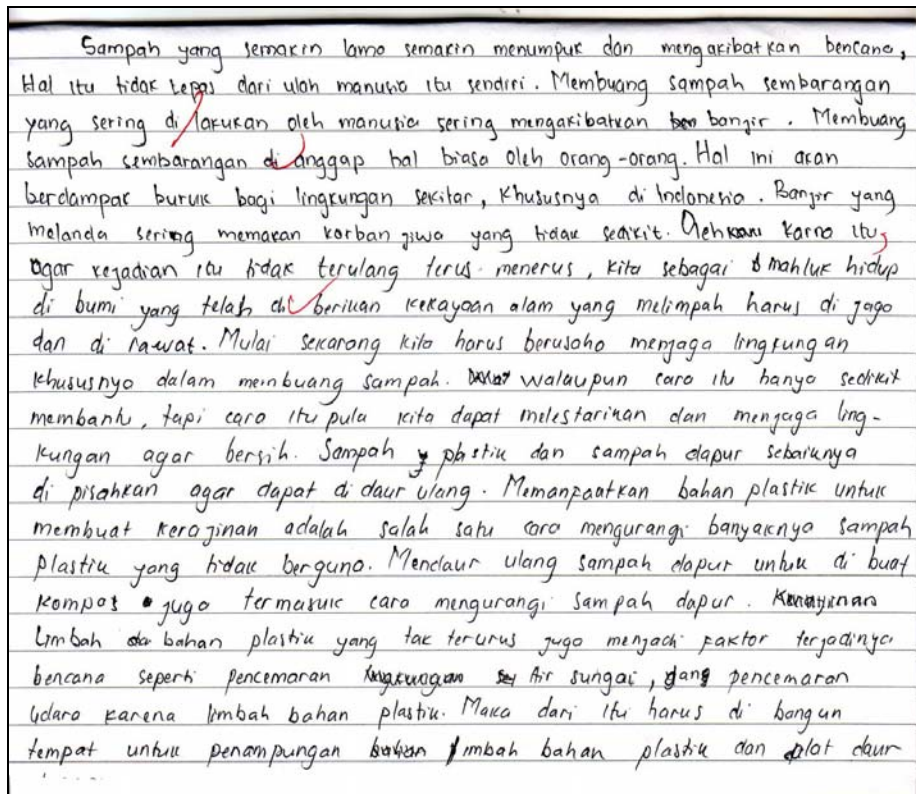 Sampah yang semakin lama semakin menumpuk dan mengakibatkan bencana,
Hal itu tidak lepas dari ulah manusia itu sendiri. Membuang sampah sembarangan
yang sering di lakukan oleh manusia sering mengakibatkan banjir. Membuang
sampah sembarangan di anggap hal biasa oleh orang-orang. Hal ini akan
berdampak buruk bagi lingkungan sekitar, khususnya di Indonesia. Banjir yang
melanda sering memakan korban jiwa yang tidak sedikit. Oleh karna itu,
agar kejadian itu tidak terulang terus menerus, kita sebagai mahluk hidup
di bumi yang telah di berikan kekayaan alam yang melimpah harus di jaga
dan di rawat. Mulai sekarang kita harus berusaha menjaga lingkungan
khususnya dalam membuang sampah. walaupun cara itu hanya sedikit
membantu, tapi cara itu pula kita dapat melestarikan dan menjaga ling-
kungan agar bersih. Sampah plastik dan sampah dapur sebaiknya
di pisahkan agar dapat di daur ulang. Memanfaatkan bahan plastik untuk
membuat kerajinan adalah salah satu cara mengurangi banyaknya sampah
plastik yang tidak berguna. Mendaur ulang sampah dapur untuk di buat
kompos juga termasuk cara mengurangi sampah dapur.
Limbah bahan plastik yang tak terurus juga menjadi faktor terjadinya
bencana seperti pencemaran Air sungai, pencemaran
udara karena limbah bahan plastik. Maka dari itu harus di bangun
tempat untuk penampungan limbah bahan plastik dan alat daur